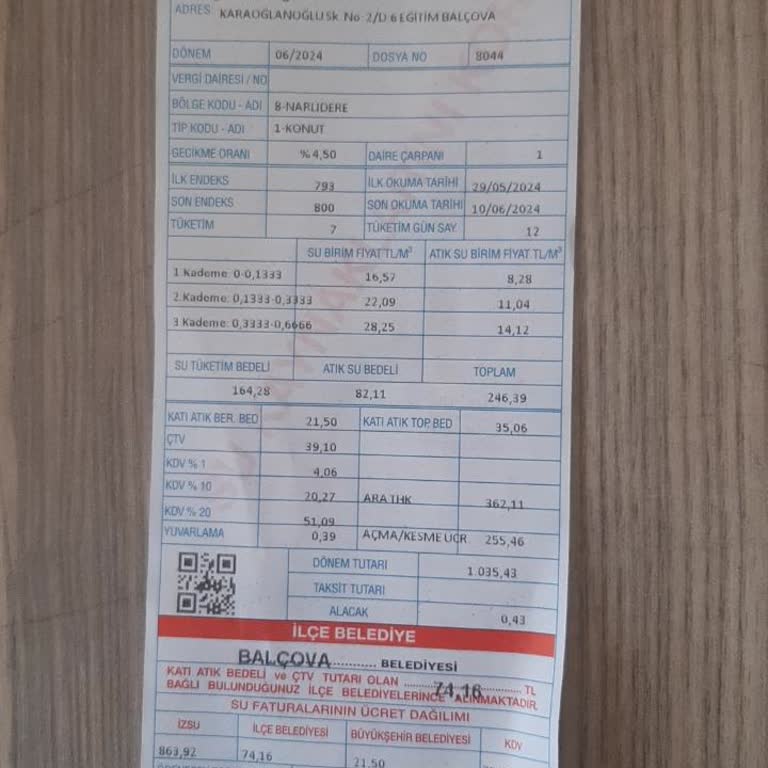 ADRES KARAOĞLANOĞLU Sk. No: 2/D:6 EĞİTİM BALÇOVA
DÖNEM 06/2024 DOSYA NO 8044
VERGİ DAİRESİ / NO
BÖLGE KODU - ADI 8-NARLIDERE
TİP KODU - ADI 1-KONUT
GECİKME ORANI %4,50 DAİRE ÇARPANI 1
İLK ENDEKS 793 İLK OKUMA TARİHİ 29/05/2024
SON ENDEKS 800 SON OKUMA TARİHİ 10/06/2024
TÜKETİM 7 TÜKETİM GÜN SAY. 12
SU BİRİM FİYAT TL/M³ ATIK SU BİRİM FİYAT TL/M³
1.Kademe: 0-0,1333 16,57 8,28
2.Kademe: 0,1333-0,3333 22,09 11,04
3.Kademe: 0,3333-0,6666 28,25 14,12
SU TÜKETİM BEDELİ ATIK SU BEDELİ TOPLAM
164,28 82,11 246,39
KATI ATIK BER. BED 21,50 KATI ATIK TOP.BED 35,06
ÇTV 39,10
KDV % 1 4,06
KDV % 10 20,27 ARA THK 362,11
KDV % 20 51,09
YUVARLAMA 0,39 AÇMA/KESME ÜCR. 255,46
DÖNEM TUTARI 1.035,43
TAKSİT TUTARI
ALACAK 0,43
İLÇE BELEDİYE
BALÇOVA............ BELEDİYESİ
KATI ATIK BEDELİ ve ÇTV TUTARI OLAN ........74,16........ TL
BAĞLI BULUNDUĞUNUZ İLÇE BELEDİYELERİNCE ALINMAKTADIR.
SU FATURALARININ ÜCRET DAĞILIMI
İZSU İLÇE BELEDİYESİ BÜYÜKŞEHİR BELEDİYESİ KDV
863,92 74,16 21,50